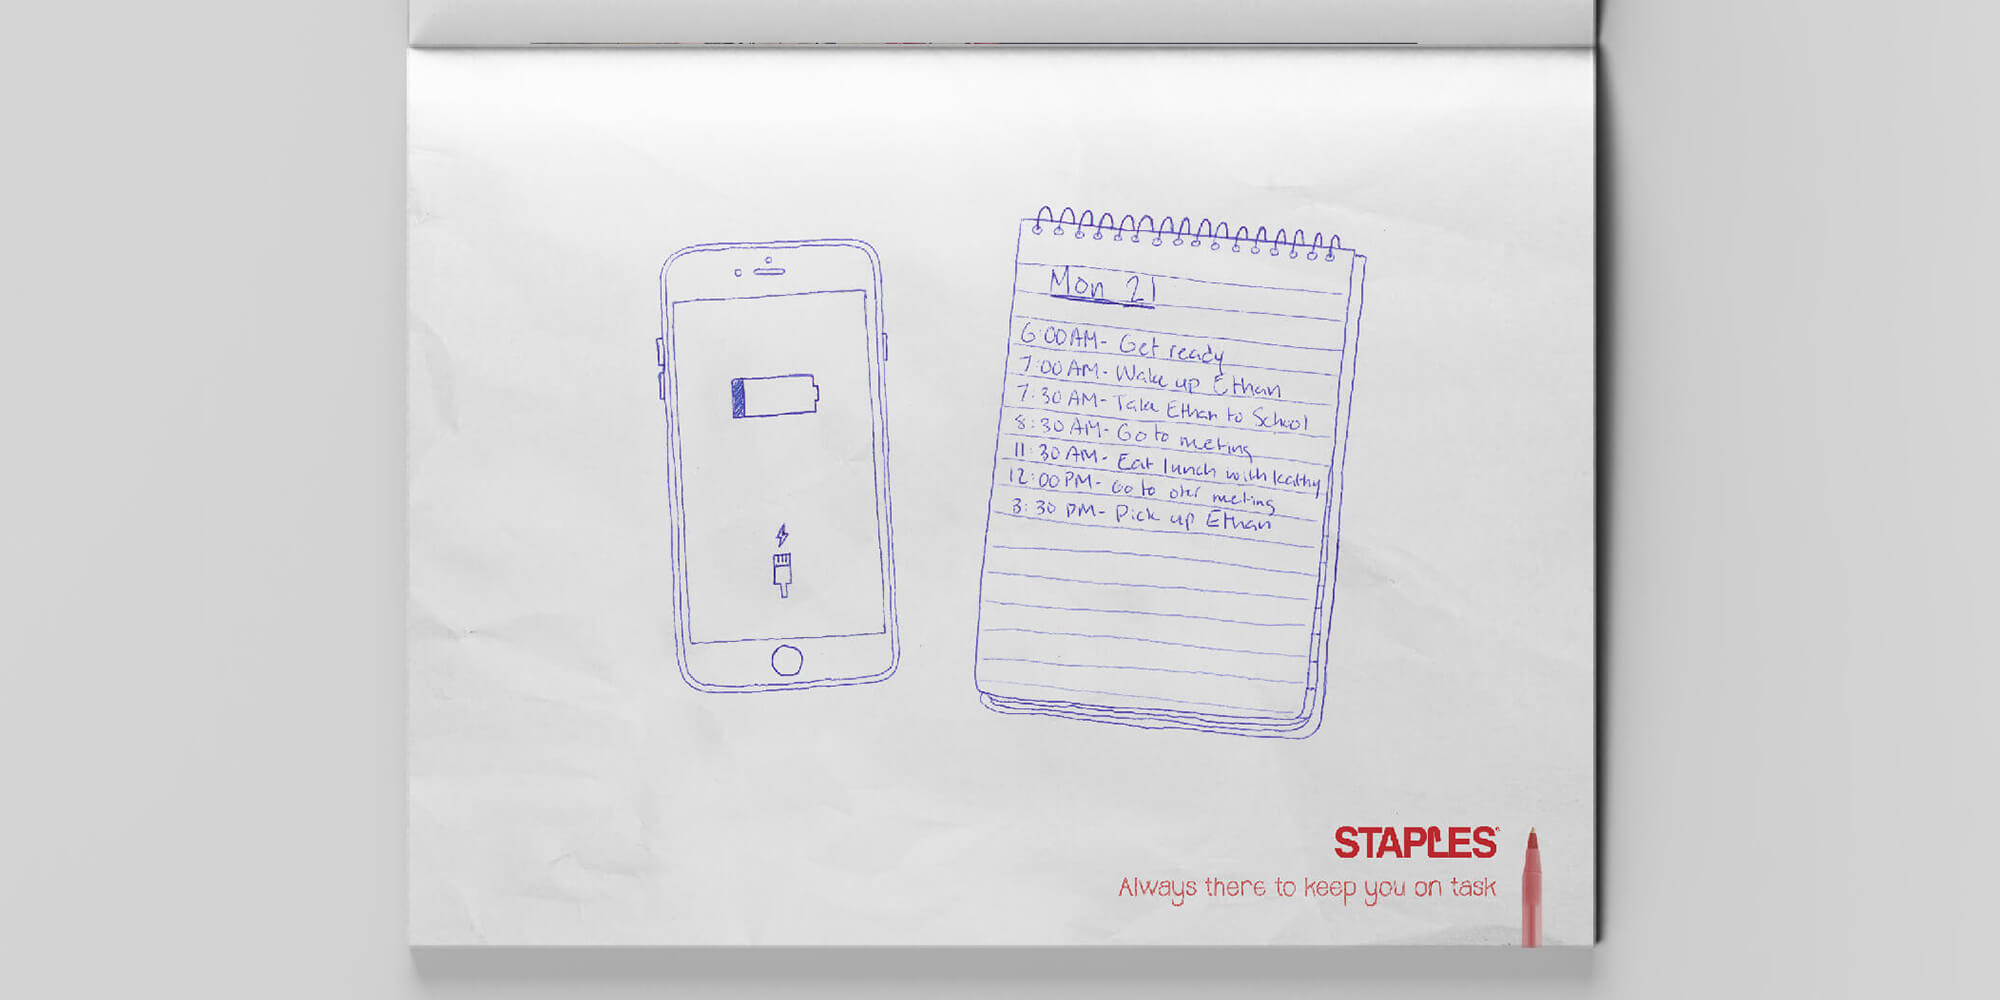 Mon 21
6:00 AM - Get ready
7:00 AM - Wake up Ethan
7:30 AM - Take Ethan to School
8:30 AM - Go to meting
11:30 AM - Eat lunch with kathy
12:00 PM - Go to oter meting
3:30 PM - Pick up Ethan
STAPLES
Always there to keep you on task